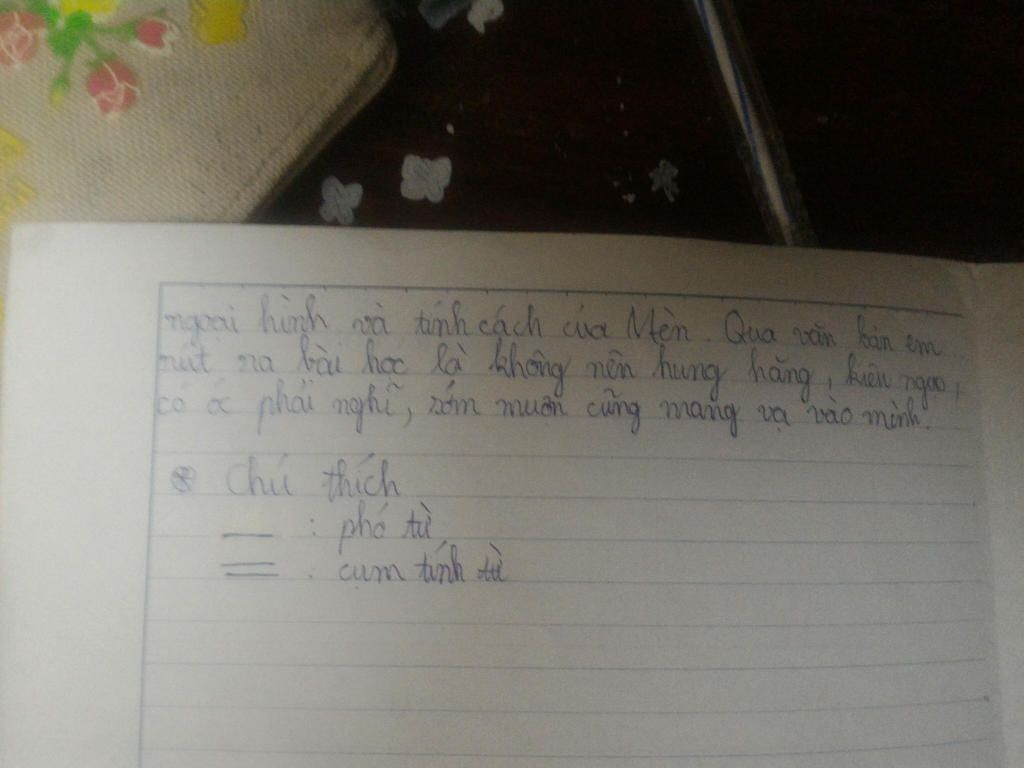 ngoại hình và tính cách của Mèn. Qua văn bản em
rút ra bài học là không nên hung hăng, kiêu ngạo,
có óc phải nghĩ, sớm muộn cũng mang vạ vào mình.
* Chú thích
— : phó từ
= : cụm tính từ